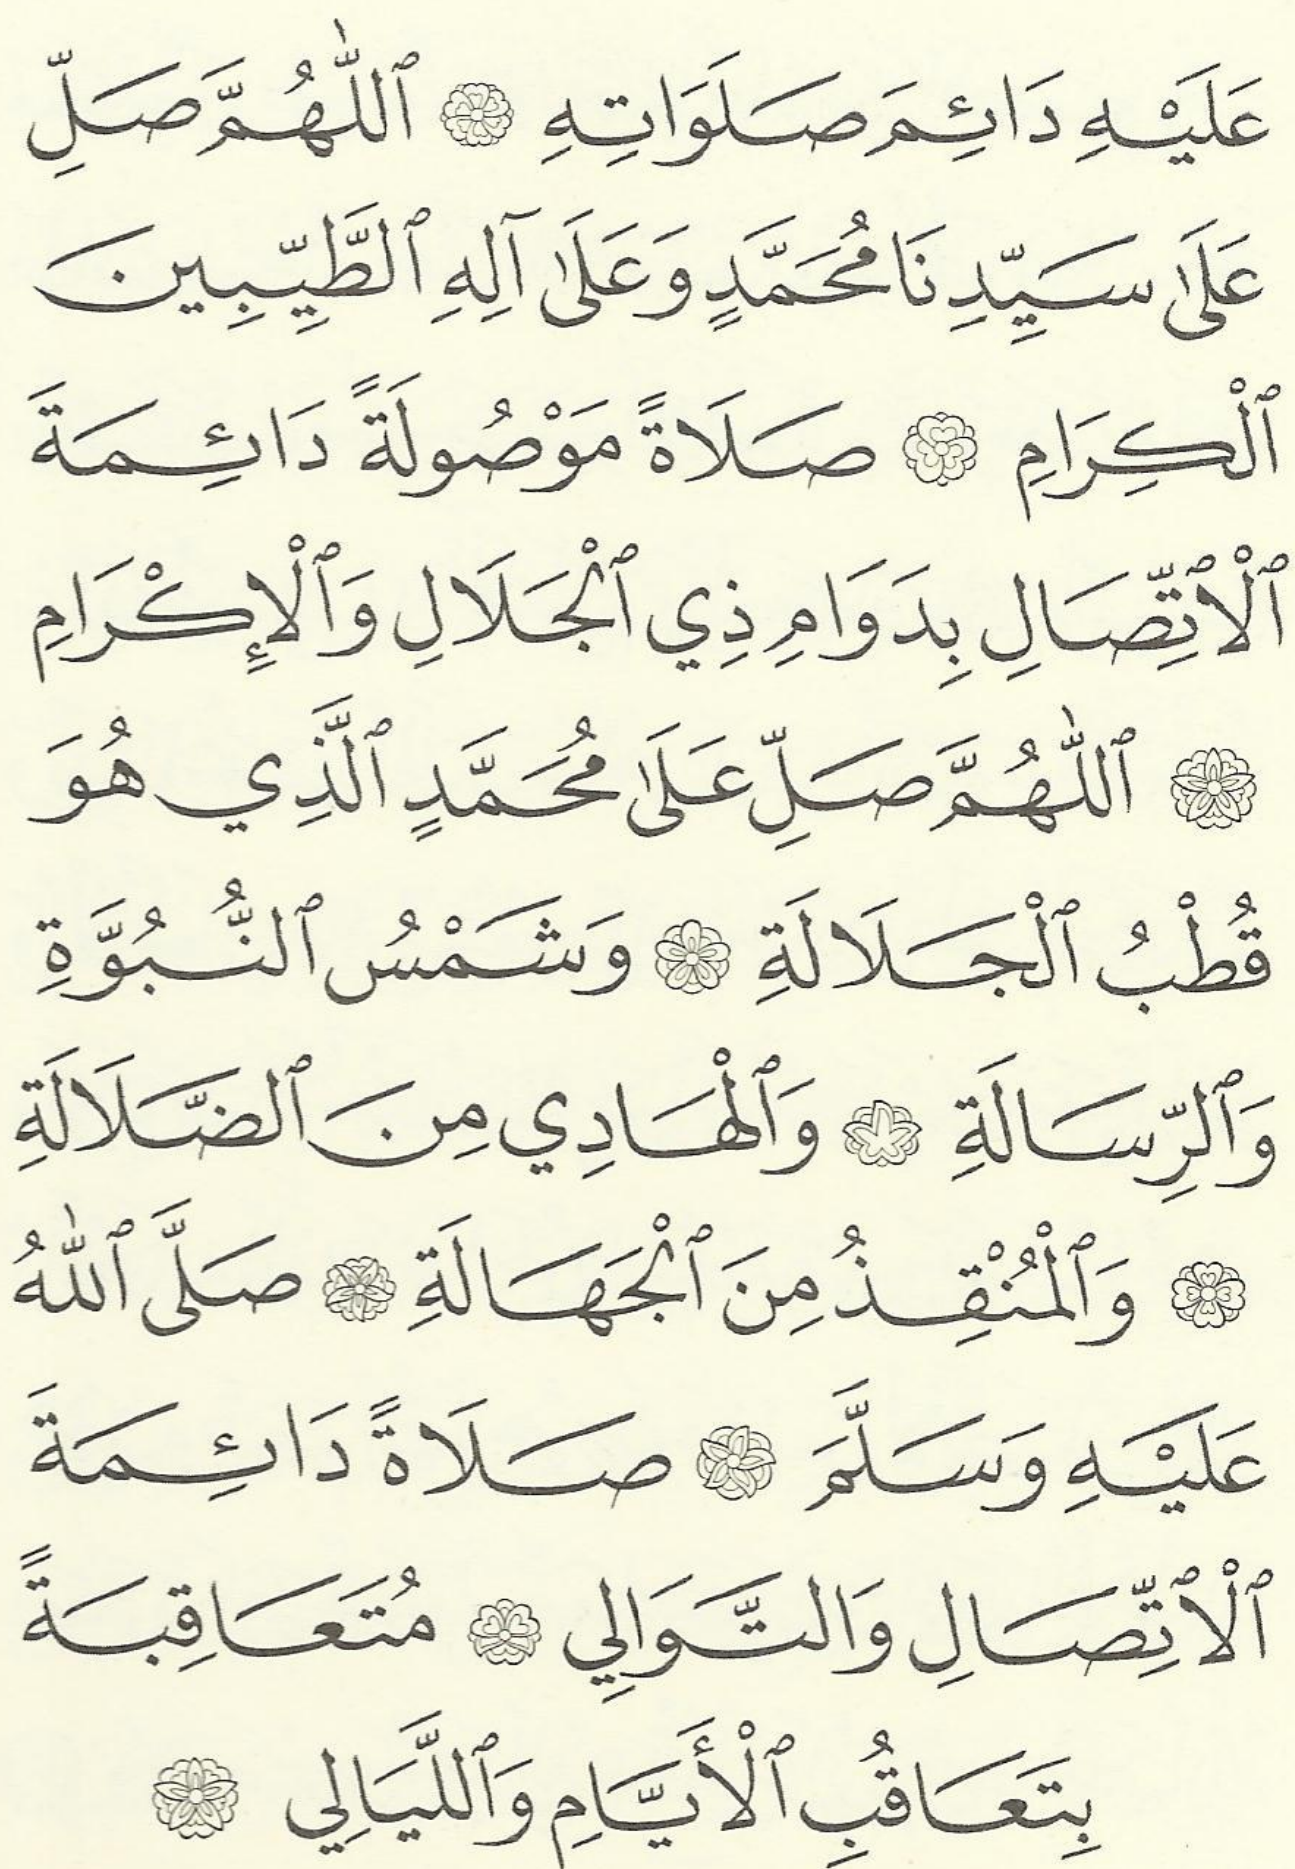 عَلَيْهِ دَائِمَ صَلَوَاتِهِ ۞ ٱللّٰهُمَّ صَلِّ
عَلَىٰ سَيِّدِنَا مُحَمَّدٍ وَعَلَىٰ آلِهِ ٱلطَّيِّبِينَ
ٱلْكِرَامِ ۞ صَلَاةً مَوْصُولَةً دَائِمَةَ
ٱلْٱتِّصَالِ بِدَوَامِ ذِي ٱلْجَلَالِ وَٱلْإِكْرَامِ
۞ ٱللّٰهُمَّ صَلِّ عَلَىٰ مُحَمَّدٍ ٱلَّذِي هُوَ
قُطْبُ ٱلْجَلَالَةِ ۞ وَشَمْسُ ٱلنُّبُوَّةِ
وَٱلرِّسَالَةِ ۞ وَٱلْهَادِي مِنَ ٱلضَّلَالَةِ
۞ وَٱلْمُنْقِذُ مِنَ ٱلْجَهَالَةِ ۞ صَلَّى ٱللّٰهُ
عَلَيْهِ وَسَلَّمَ ۞ صَلَاةً دَائِمَةَ
ٱلْٱتِّصَالِ وَالتَّوَالِي ۞ مُتَعَاقِبَةً
بِتَعَاقُبِ ٱلْأَيَّامِ وَٱللَّيَالِي ۞